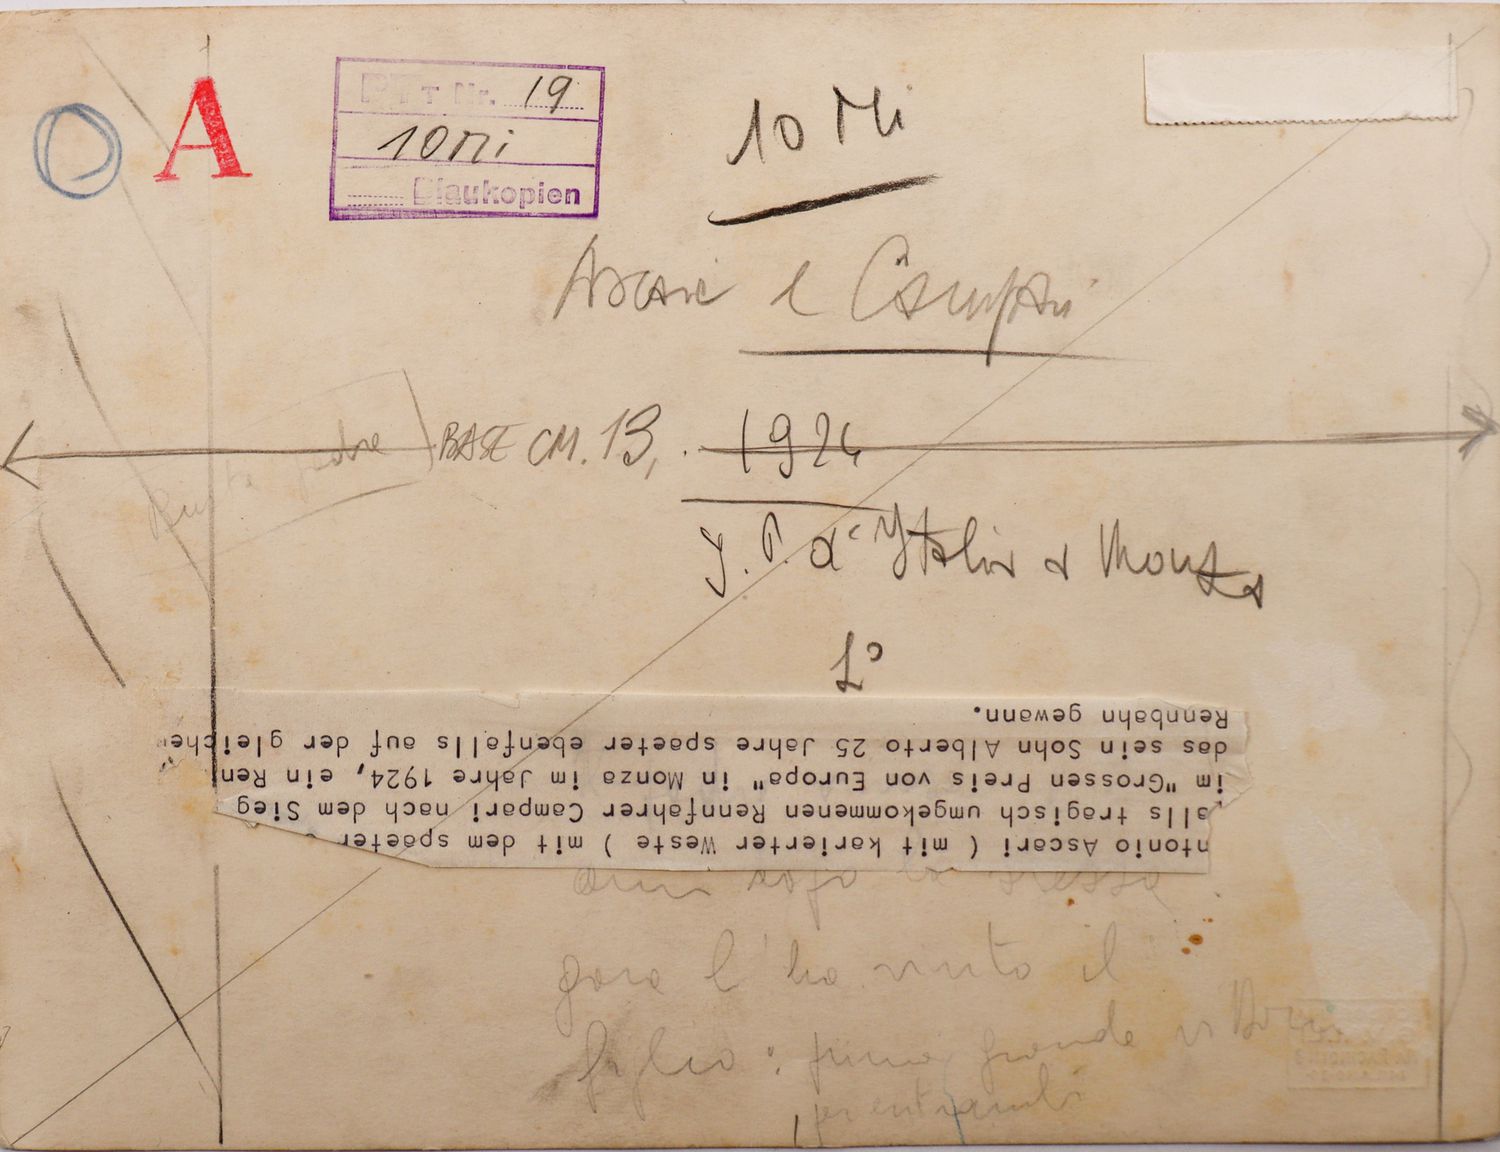 A
Nr. 19
10 Mi
Blaukopien
10 Mi
Ascari e Campari
BASE CM. 13,. 1924
G.P. d'Italia a Monza
1°
ntonio Ascari ( mit karierter Weste ) mit dem spaeter
alls tragisch umgekommenen Rennfahrer Campari nach dem Sieg
im "Grossen Preis von Europa" in Monza im Jahre 1924, ein Ren
das sein Sohn Alberto 25 Jahre spaeter ebenfalls auf der gleichen
Rennbahn gewann.
anni dopo la stessa
gara l'ha vinto il
figlio: prima grande vittoria
per entrambi